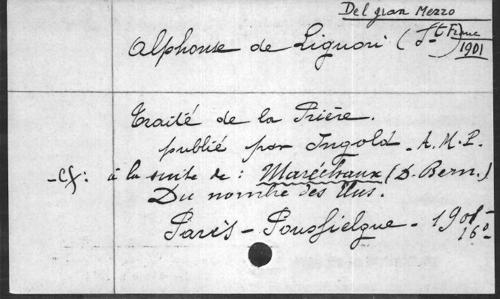 Del gran Mezzo
Alphonse de Liguori (St Franc
1901
Traité de la Prière.
publié par Ingold - A.M.P.
- Cf: à la suite de: Maréchaux (D. Bern.)
Du nombre des élus.
Paris - Poussielgue - 1901
16°